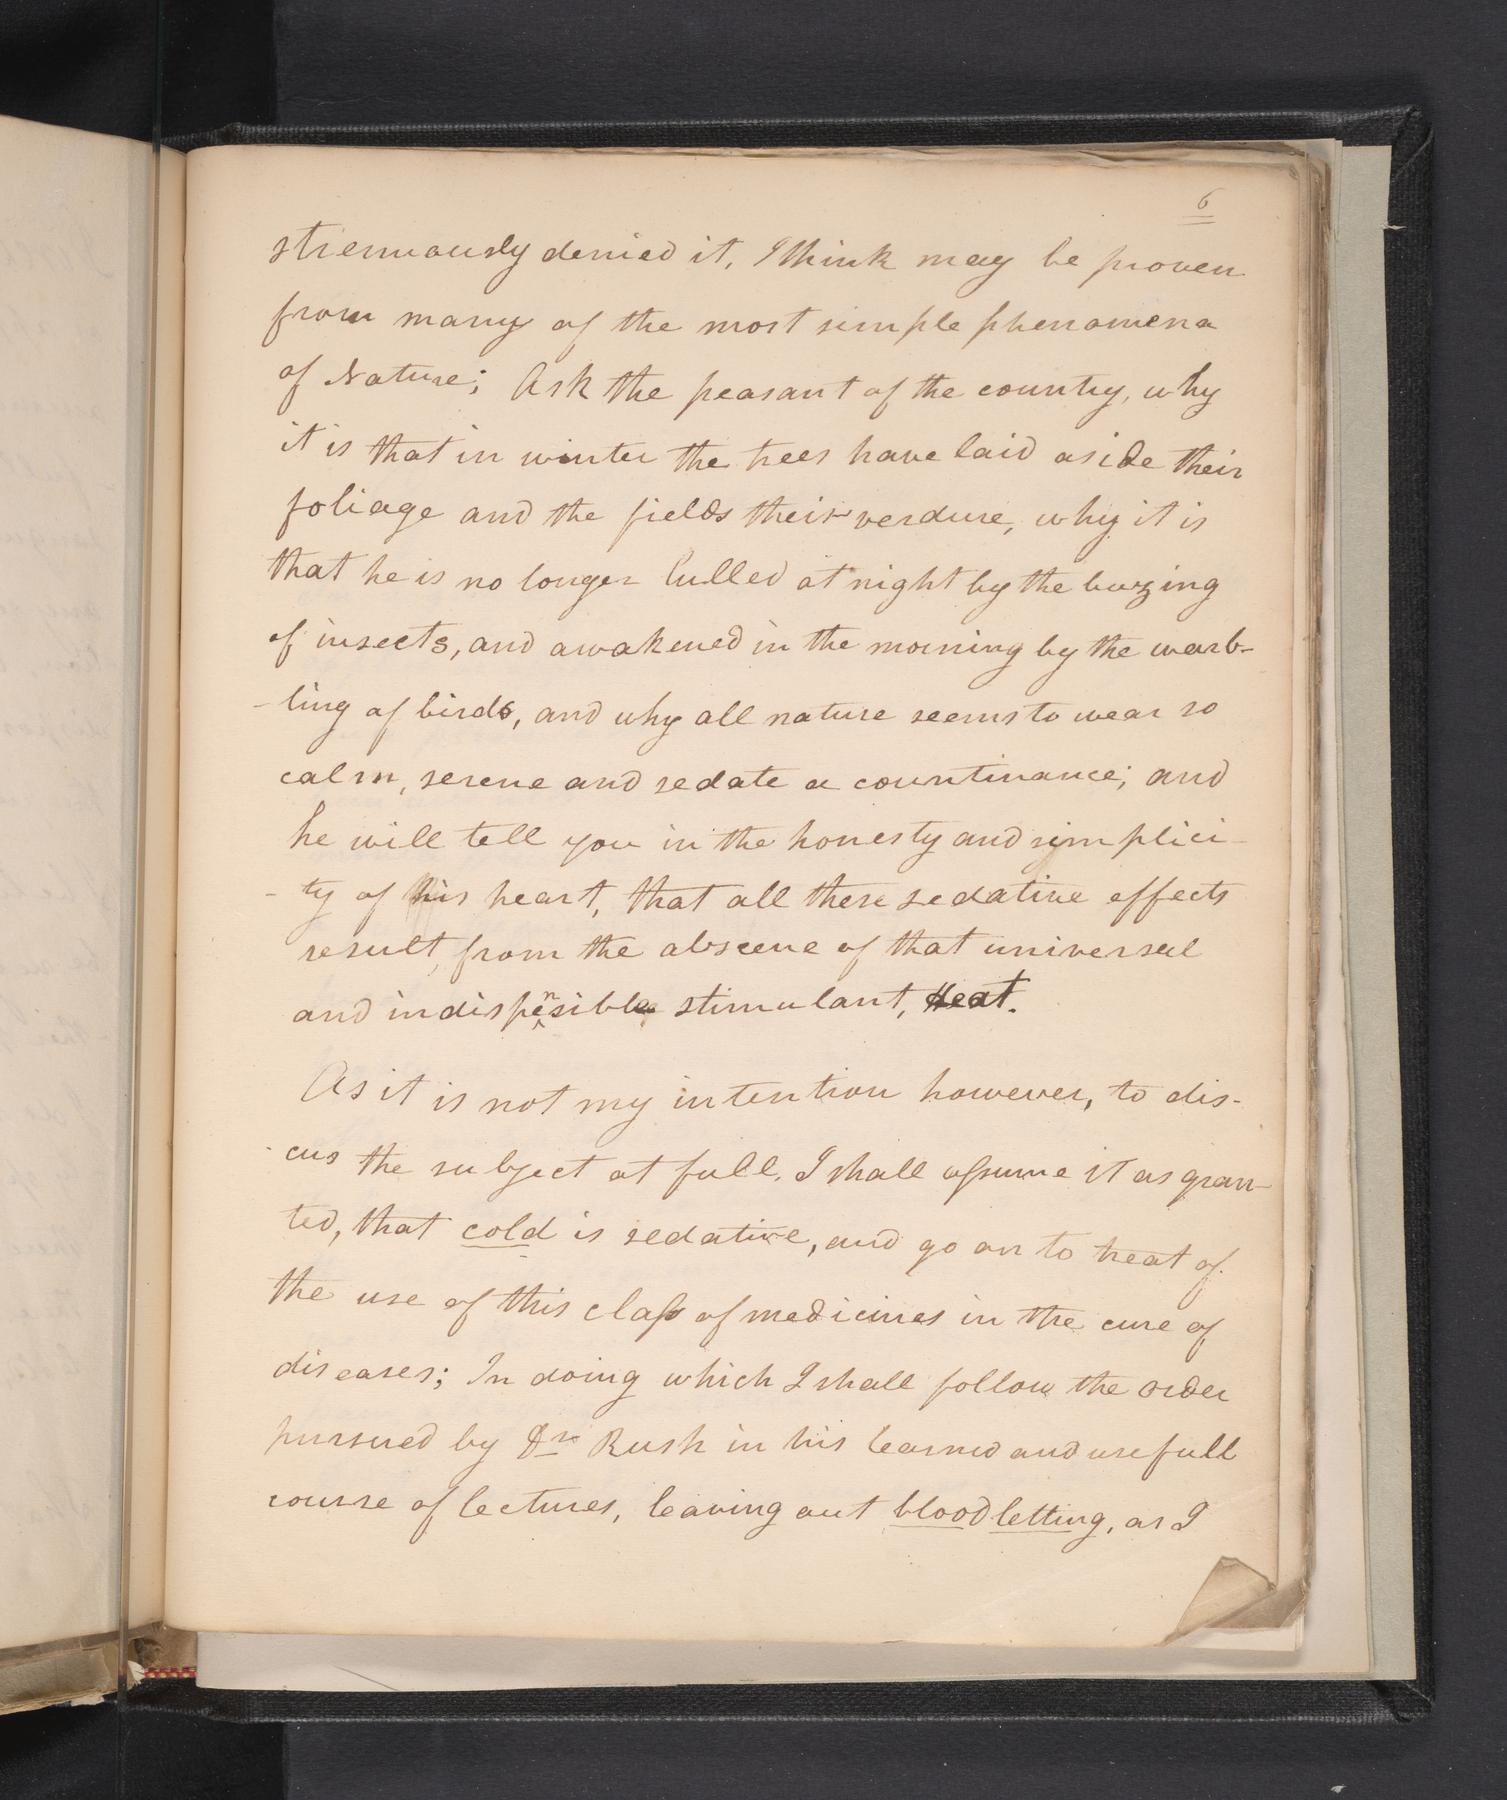 6
strenuously denied it, I think may be proven
from many of the most simple phenomena
of Nature; Ask the peasant of the country, why
it is that in winter the trees have laid aside their
foliage and the fields their verdure, why it is
that he is no longer lulled at night by the buzing
of insects, and awakened in the morning by the warb-
-ling of birds, and why all nature seems to wear so
calm, serene and sedate a countinance; and
he will tell you in the honesty and simplici-
-ty of his heart, that all these sedative effects
result, from the abscene of that universal
and indispensible stimulant, Heat.
As it is not my intention however, to dis-
-cus the subject at full, I shall assume it as gran-
ted, that cold is sedative, and go on to treat of
the use of this class of medicines in the cure of
diseases; In doing which I shall follow the order
pursued by Dr. Rush in his learned and usefull
course of lectures, leaving out bloodletting, as I